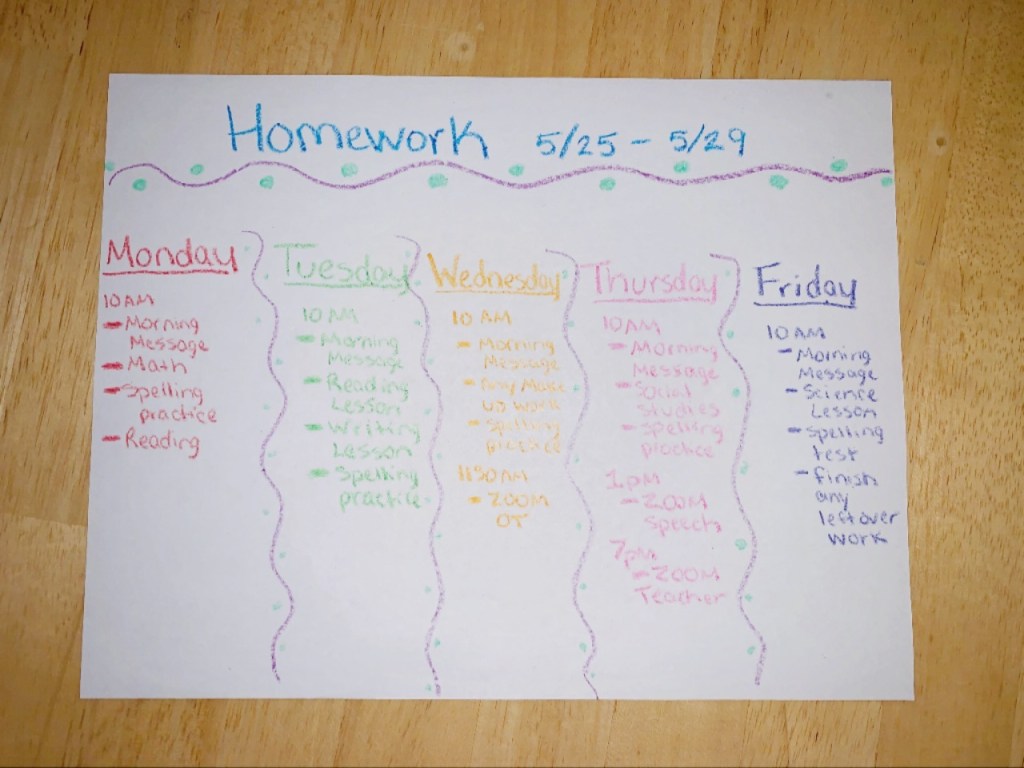 Homework 5/25 - 5/29
Monday
10AM
- Morning
Message
- Math
- Spelling
practice
- Reading
Tuesday
10AM
- Morning
Message
- Reading
Lesson
- Writing
Lesson
- Spelling
practice
Wednesday
10 AM
- Morning
Message
- Any Make
up work
- Spelling
practice
1130AM
- ZOOM
OT
Thursday
10AM
- Morning
Message
- Social
studies
- Spelling
practice
1pm
- ZOOM
Speech
7pm
- ZOOM
Teacher
Friday
10AM
- Morning
Message
- Science
Lesson
- Spelling
test
- finish
any
leftover
work